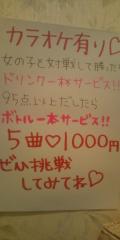 カラオケ有り♡
女の子と対戦して勝ったら
ドリンク一杯サービス!!
95点以上だしたら
ボトル一本サービス!!
5曲♡1000円
ぜひ挑戦
してみてね♡